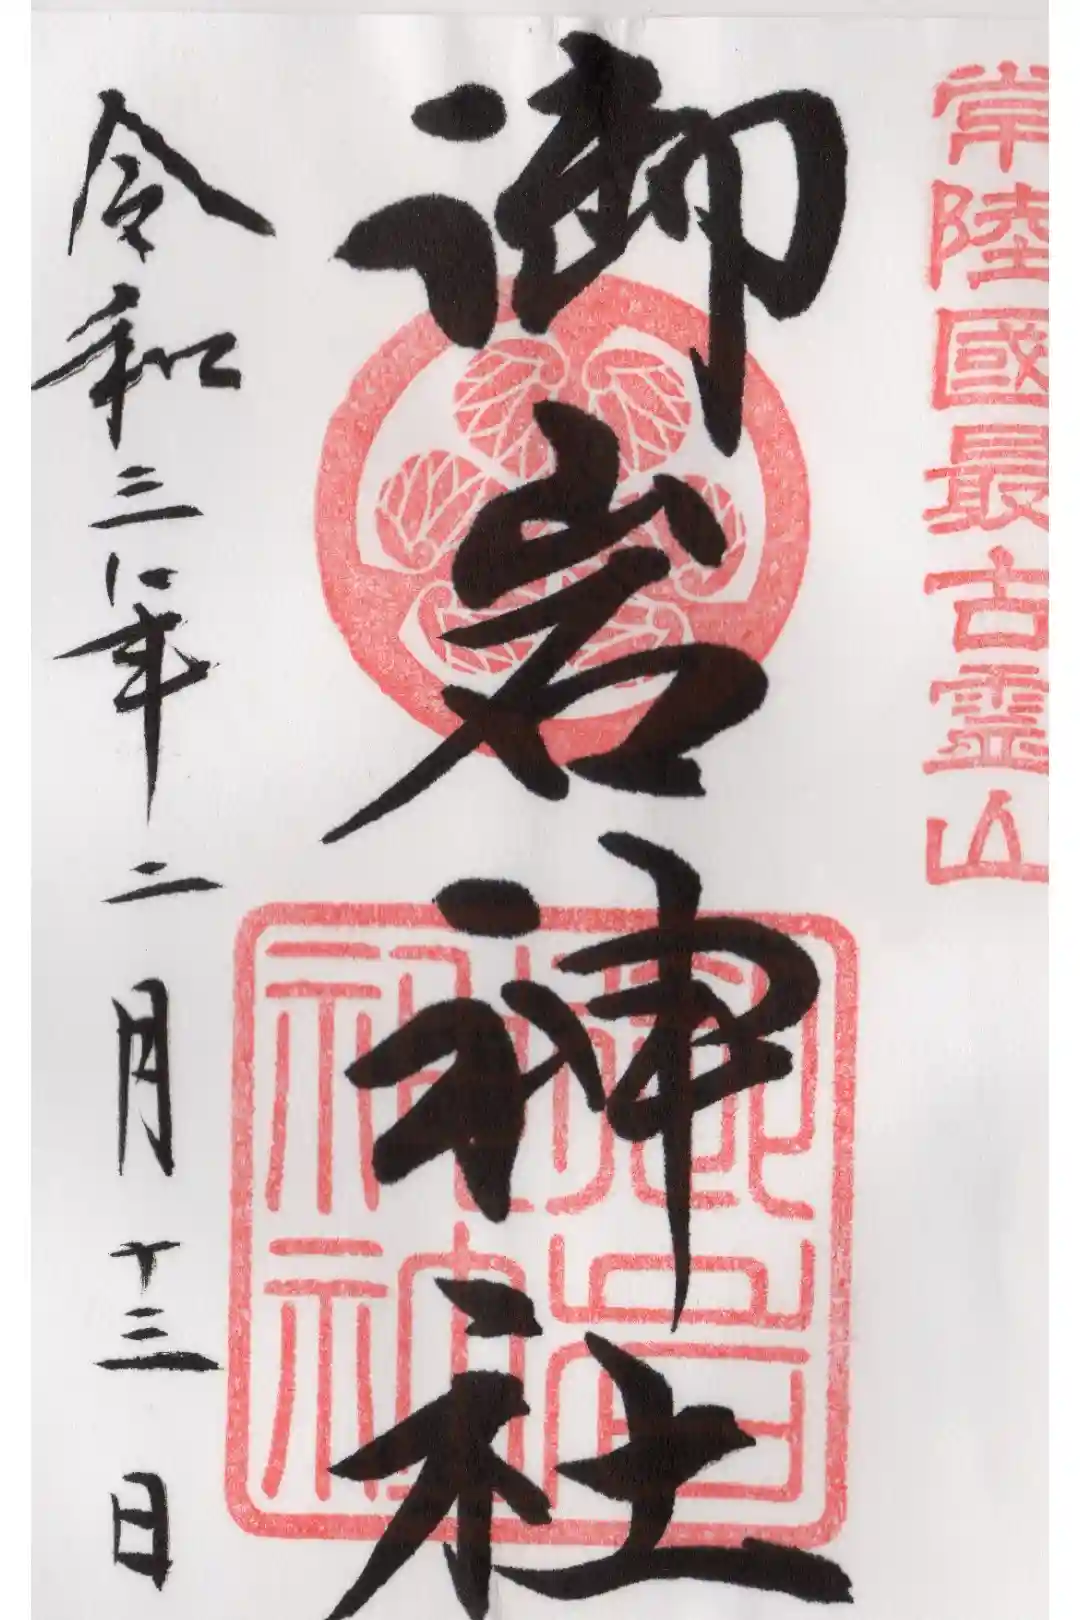 常陸國最古霊山
御岩神社
御岩神社
令和三年二月十三日